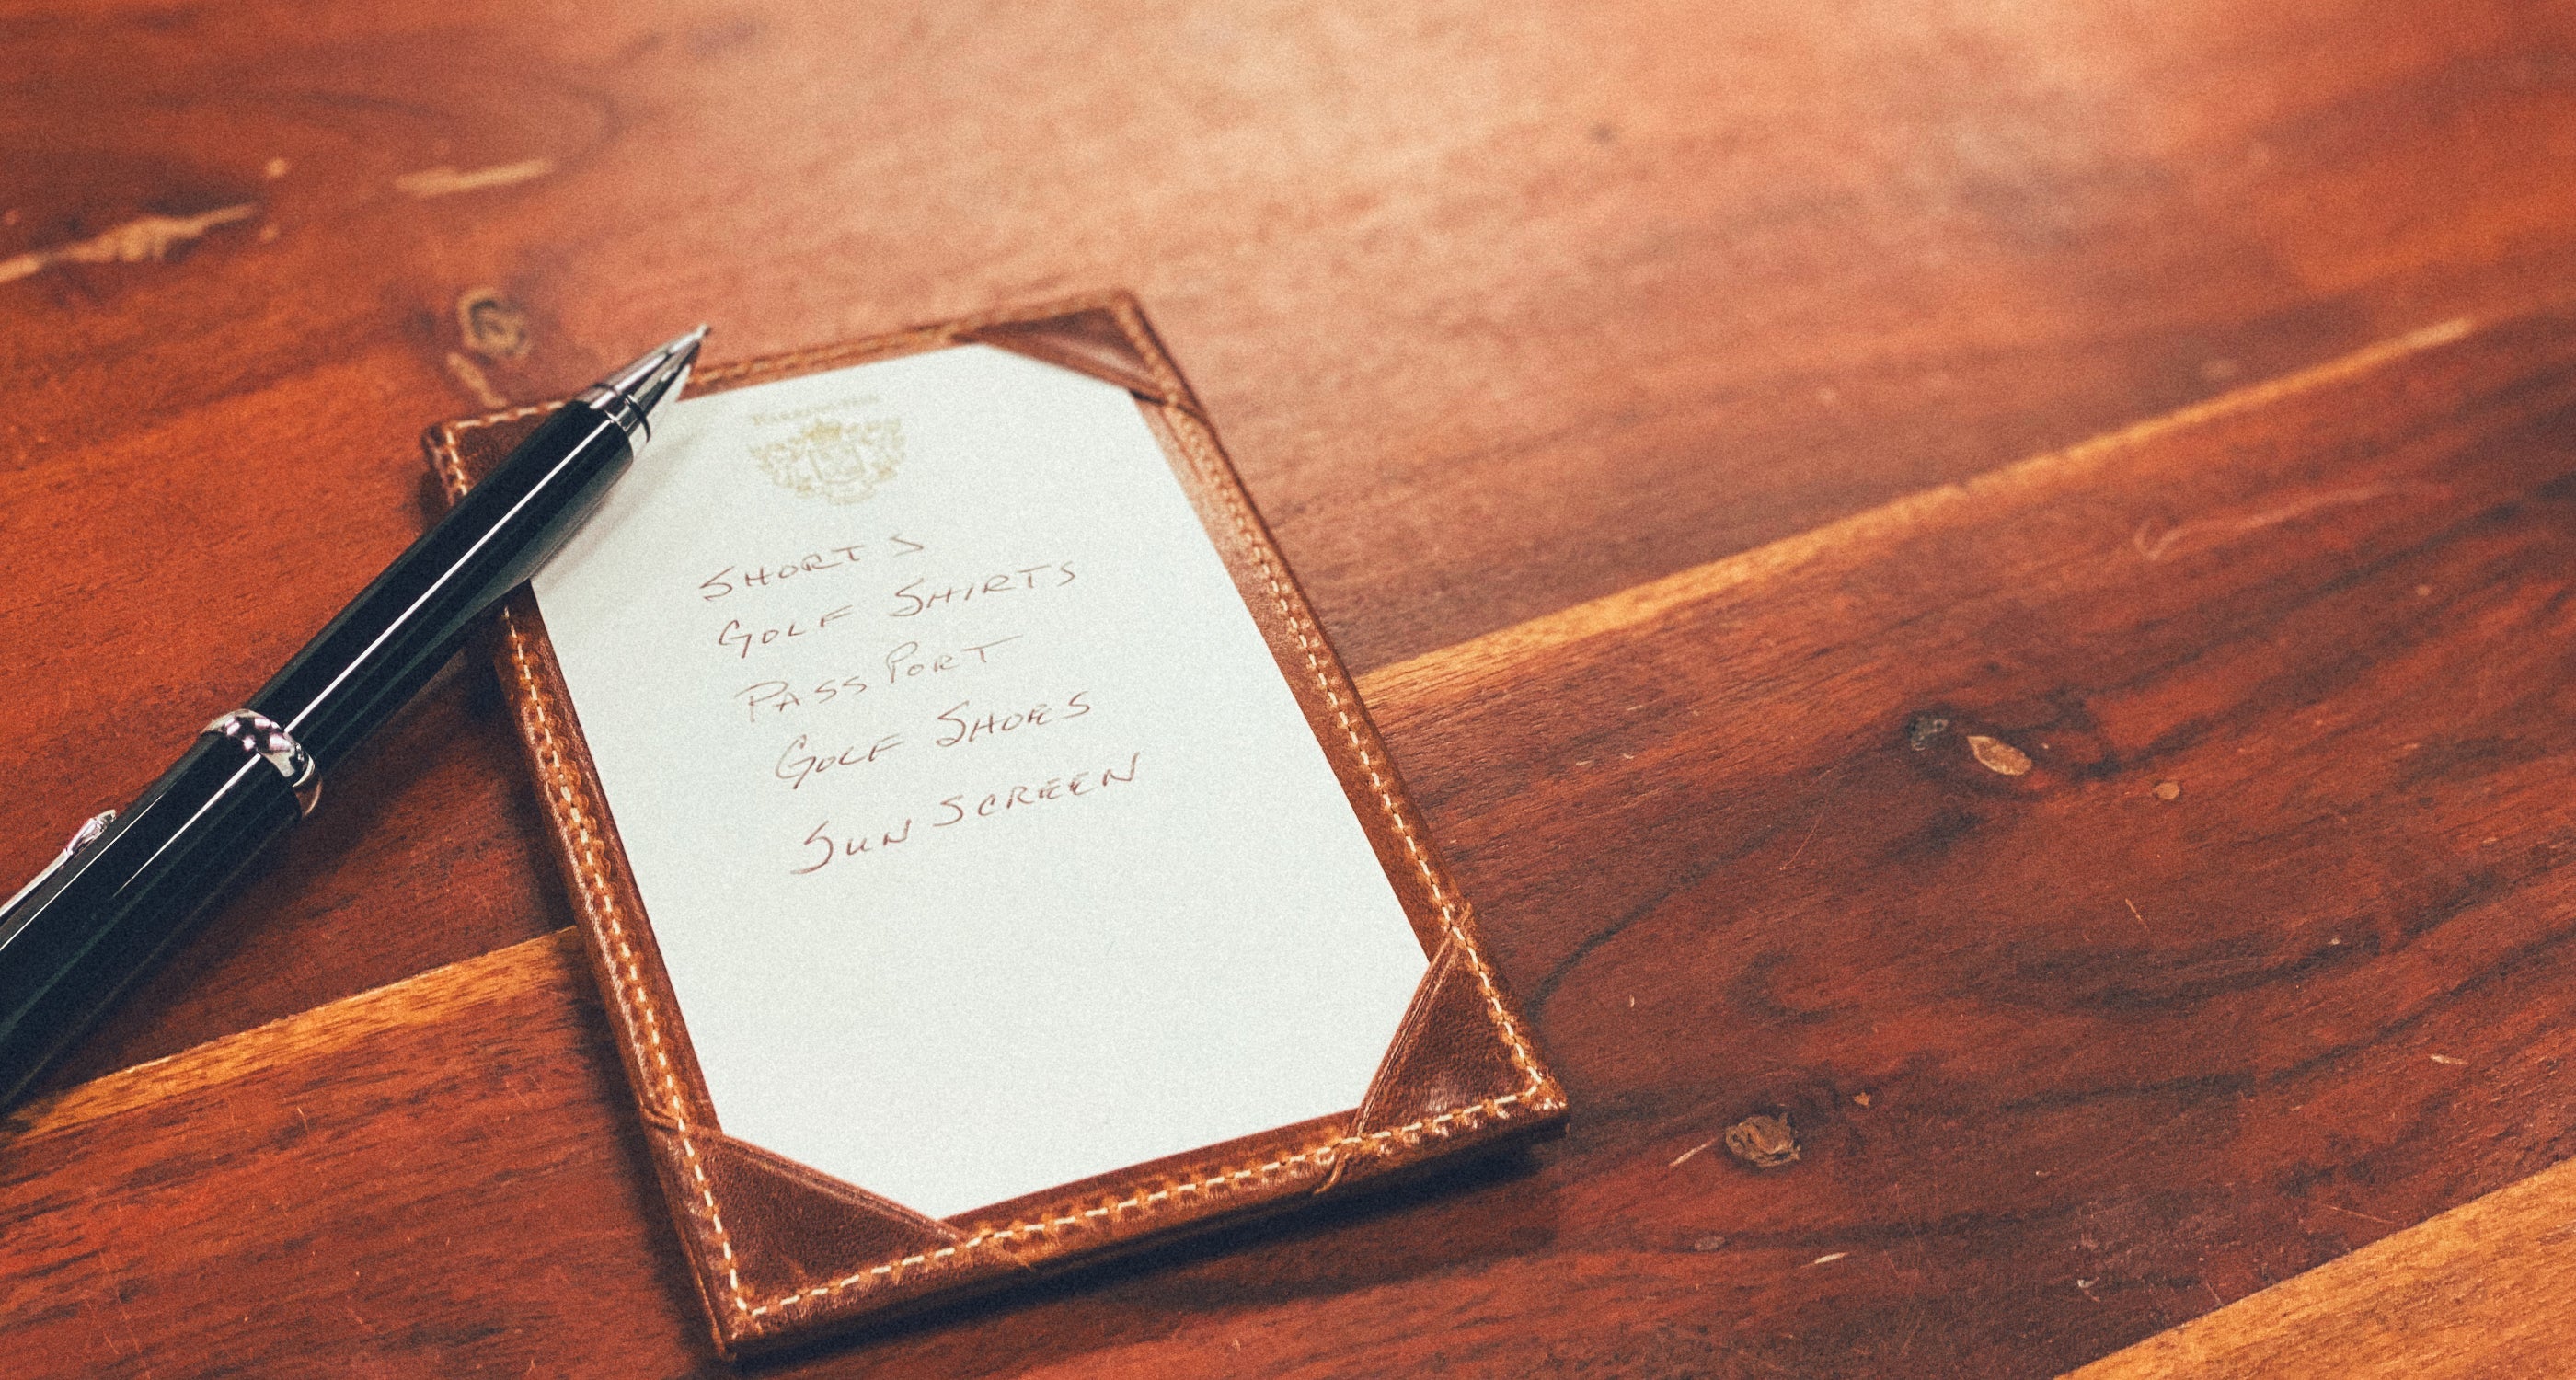 SHORTS
GOLF SHIRTS
PASSPORT
GOLF SHOES
SUN SCREEN